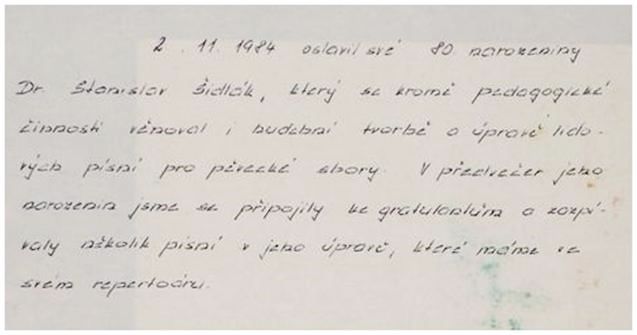 2. 11. 1984 oslavil své 80. narozeniny
Dr. Stanislav Šidlák, který se kromě pedagogické
činnosti věnoval i hudební tvorbě a úpravě lido-
vých písní pro pěvecké sbory. V předvečer jeho
narozenin jsme se připojily ke gratulantům a zazpí-
valy několik písní v jeho úpravě, které máme ve
svém repertoáru.